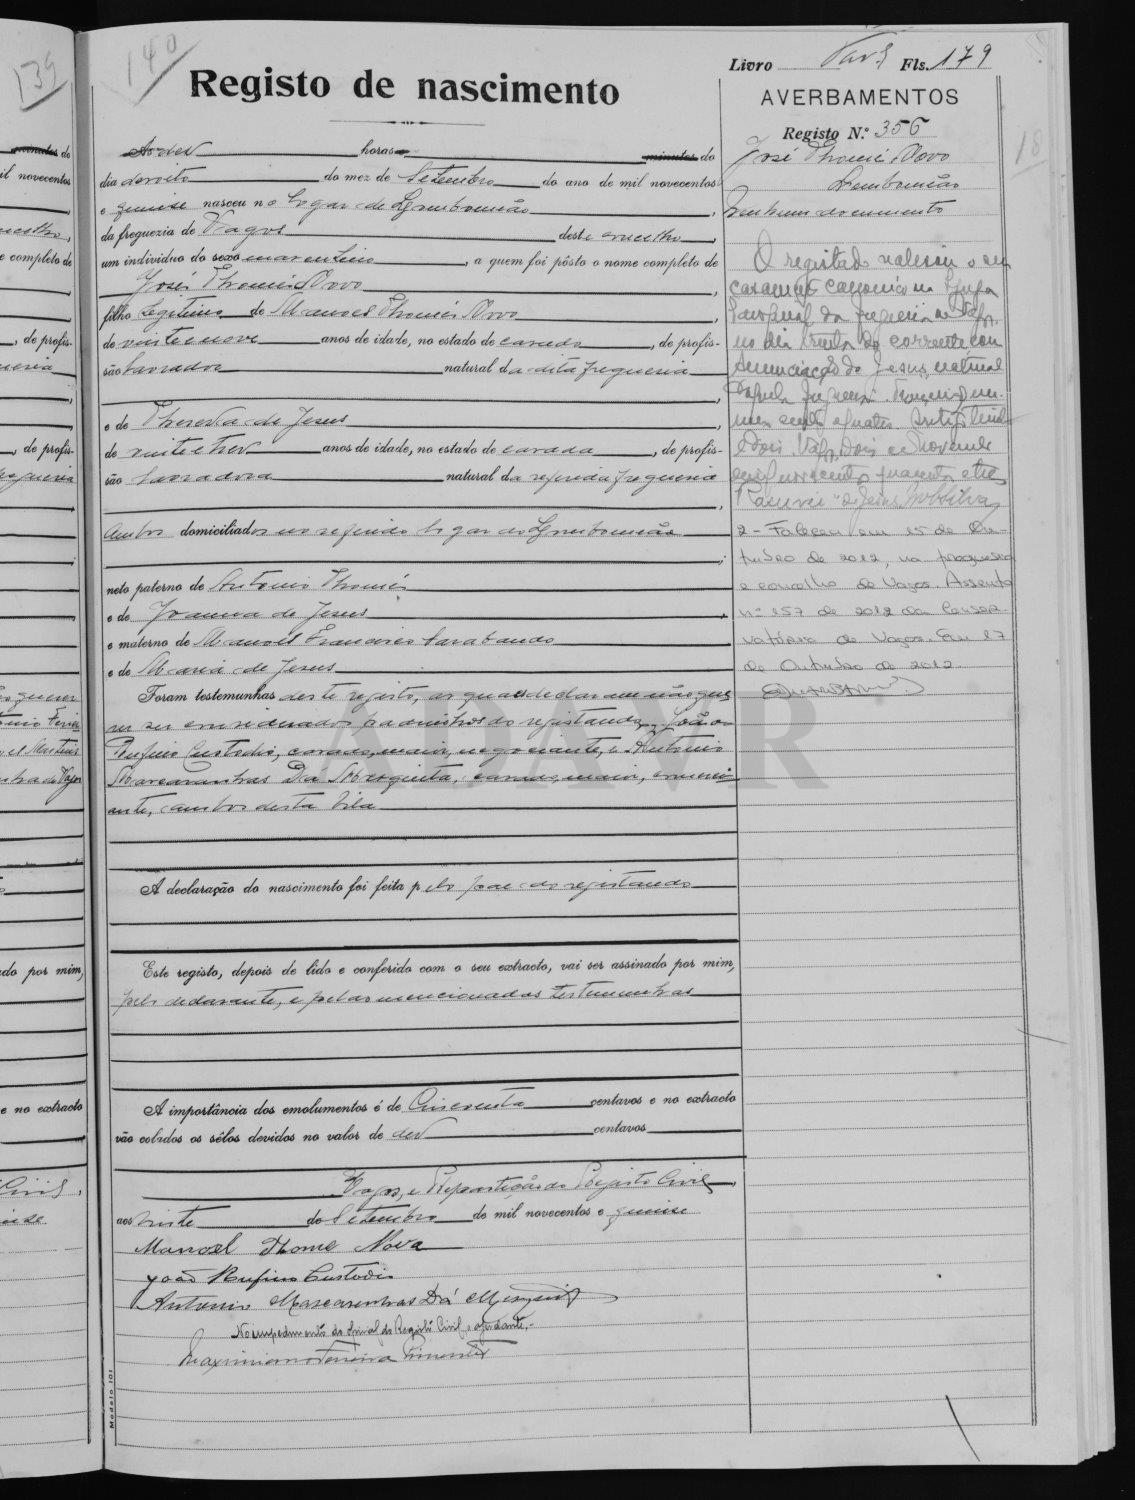 139
140
Registo de nascimento
Livro Fls. 179
AVERBAMENTOS
Registo N.º 356
18
José Thomé Novo
Lombomeão
Nenhum documento
Ás dez horas minutos do
dia dezoito do mez de Setembro do ano de mil novecentos
e quinze nasceu no logar de Lombomeão,
da freguezia de Vagos deste concelho,
um individuo do sexo masculino, a quem foi pôsto o nome completo de
José Thomé Novo,
filho Legitimo de Manoel Thomé Novo,
de vinte e nove anos de idade, no estado de casado, de profis-
são lavrador natural da dita freguesia,
e de Thereza de Jesus,
de vinte e tres anos de idade, no estado de casada, de profis-
são lavradora natural da referida freguesia,
ambos domiciliados no referido logar do Lombomeão;
neto paterno de Antonio Thomé
e de Joanna de Jesus,
e materno de Manoel Francisco Sarabando
e de Maria de Jesus
Foram testemunhas deste registo, as quaes declararam não que-
rer ser considerados padrinhos do registando, João
Rufino Custodio, casado, maior, negociante, e Antonio
Mascarenhas Da Mesquita, casado, maior, comerci-
ante, ambos desta Vila
A declaração do nascimento foi feita pelo pae do registando
Este registo, depois de lido e conferido com o seu extracto, vai ser assinado por mim,
pelo declarante, e pelas mencionadas testemunhas
A importância dos emolumentos é de Cincoenta centavos e no extracto
vão colados os sêlos devidos no valor de dez centavos
Vagos, e Repartição do Registo Civil,
aos vinte de Setembro de mil novecentos e quinze
Manoel Thome Novo
João Rufino Custodio
Antonio Mascarenhas Dá Mesquita
No impedimento do oficial do Registo Civil, o ajudante,
Maximiano Ferreira Pimentel
Modelo 101
O registado celebrou o seu
casamento canonico na Igreja
Paroquial da freguesia de Vagos,
no dia trinta do corrente com
Anunciação de Jesus, natural
e Dois. Vagos, Dois de Novembro
de mil novecentos quarenta e tres
2 - Faleceu em 15 de Ou-
tubro de 2012, na freguesia
e concelho de Vagos. Assento
nº 157 de 2012 da Conser-
vatória de Vagos. Em 17
de Outubro de 2012.
ADAVR